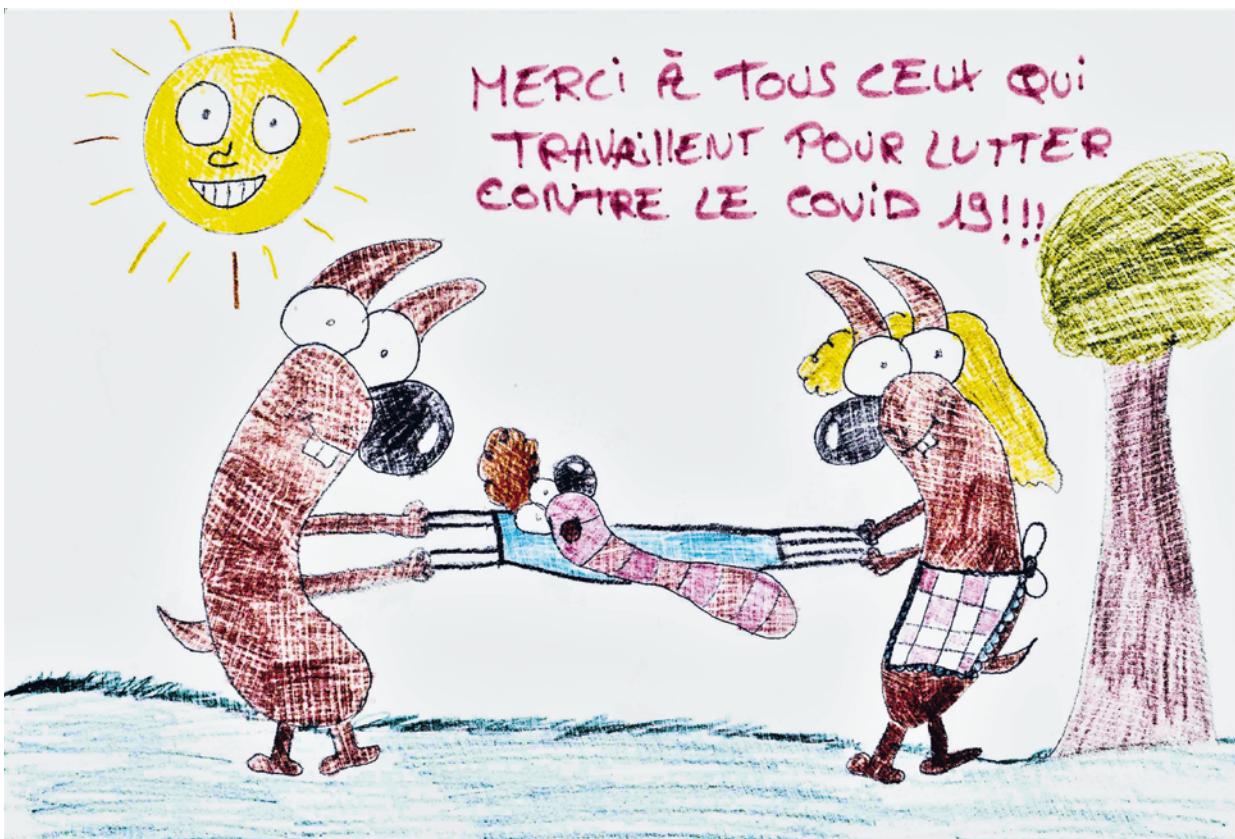 MERCi À TOUS CEUX QUi
TRAVAiLLENT POUR LUTTER
CONTRE LE COViD 19!!!